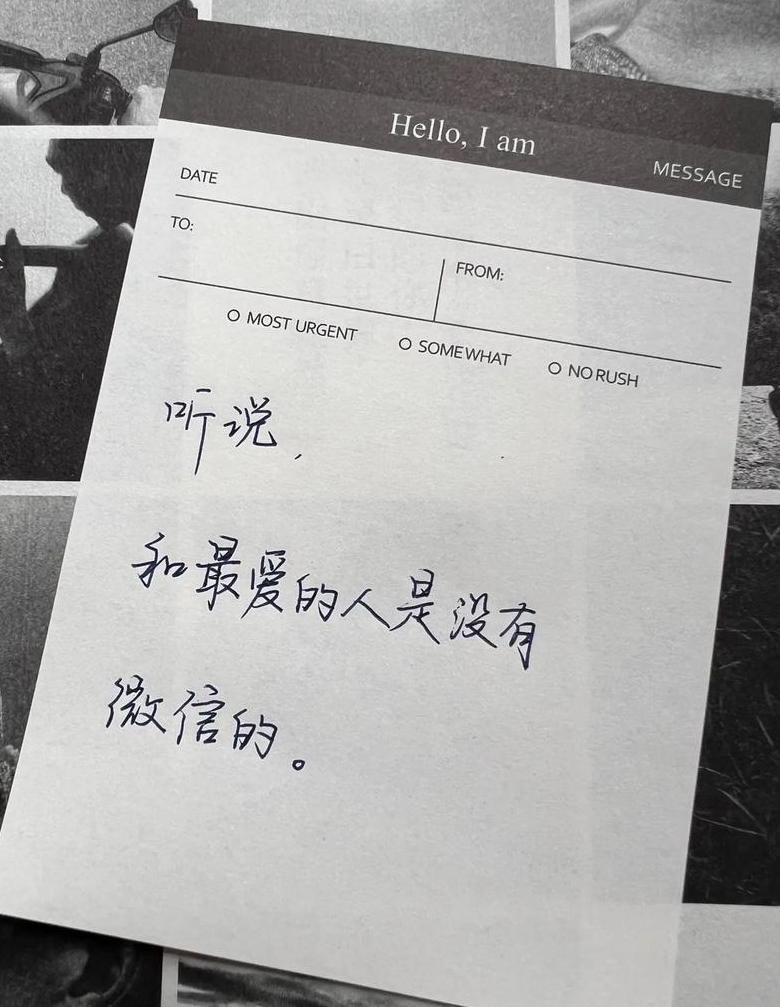 Hello, I am
MESSAGE
DATE
TO:
FROM:
MOST URGENT
SOMEWHAT
NO RUSH
听说,
和最爱的人是没有
微信的。